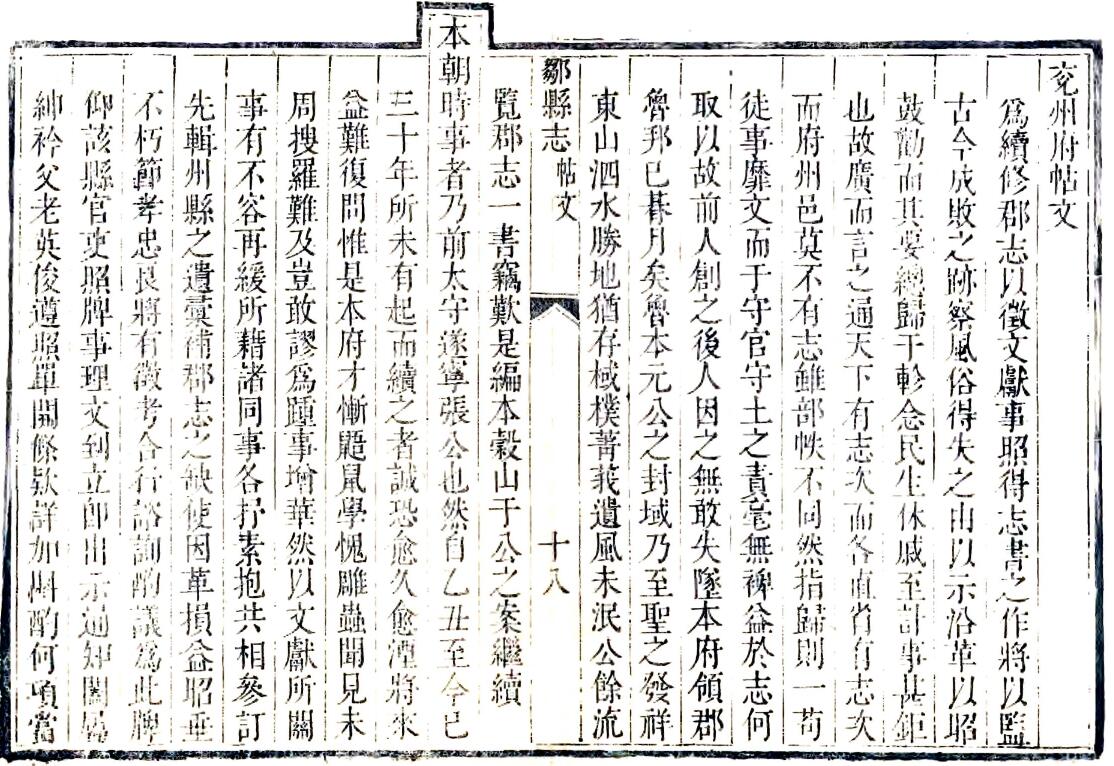 兖州府帖文
爲續修郡志以徵文獻事照得志書之作將以監
古今成敗之跡察風俗得失之由以示沿革以昭
鼓勸而其要總歸于軫念民生休戚至計事甚鉅
也故廣而言之通天下有志次而各直省有志次
而府州邑莫不有志雖部帙不同然指歸則一苟
徒事靡文而于守官守土之責毫無裨益於志何
取以故前人創之後人因之無敢失墜本府領郡
魯邦已朞月矣魯本元公之封域乃至聖之發祥
東山泗水勝地猶存棫樸菁莪遺風未泯公餘流
鄒縣志 帖文 十八
覽郡志一書竊歎是編本穀山于公之案繼續
本朝時事者乃前太守遂寧張公也然自乙丑至今已
三十年所未有起而續之者誠恐愈久愈湮將來
益難復問惟是本府才慚鼯鼠學愧雕蟲聞見未
周搜羅難及豈敢謬爲踵事增華然以文獻所關
事有不容再緩所藉諸同事各抒素抱共相參訂
先輯州縣之遺彙補郡志之缺使因革損益昭垂
不朽節孝忠良將有徵考合行諮詢酌議爲此牌
仰該縣官吏照牌事理文到立即出示通知闔縣
紳衿父老英俊遵照單開條欵詳加斟酌何項當